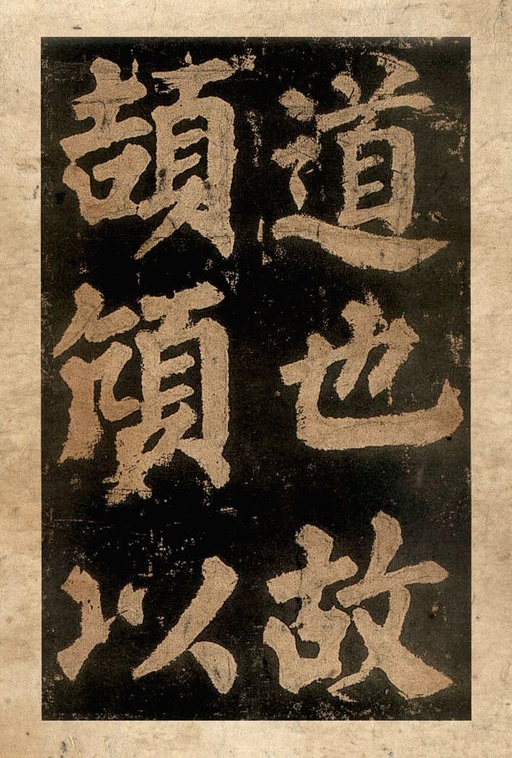 道也故
頡頏以